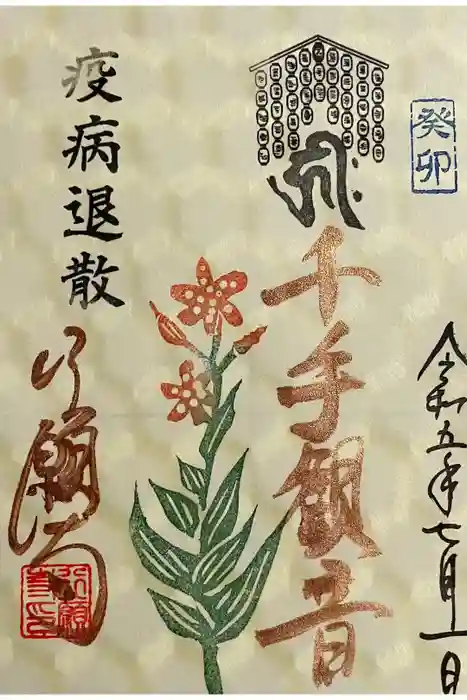 癸卯
令和五年七月一日
千手観音
疫病退散
行願寺